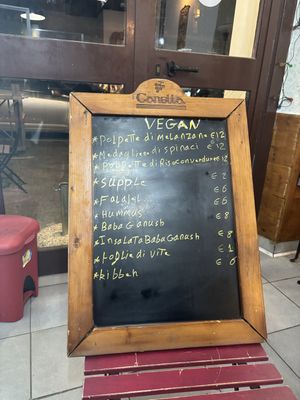 Canella
VEGAN
*Polpette di melanzane €12
*Medaglione di spinaci €12
*Polpette di Riso con verdure €12
*Supplè € 2
*Falafel € 6
*Hummus € 6
*Baba Ganush € 8
*Insalata Baba Ganush € 8
*Foglie di vite € 1
*Kibbeh € 6